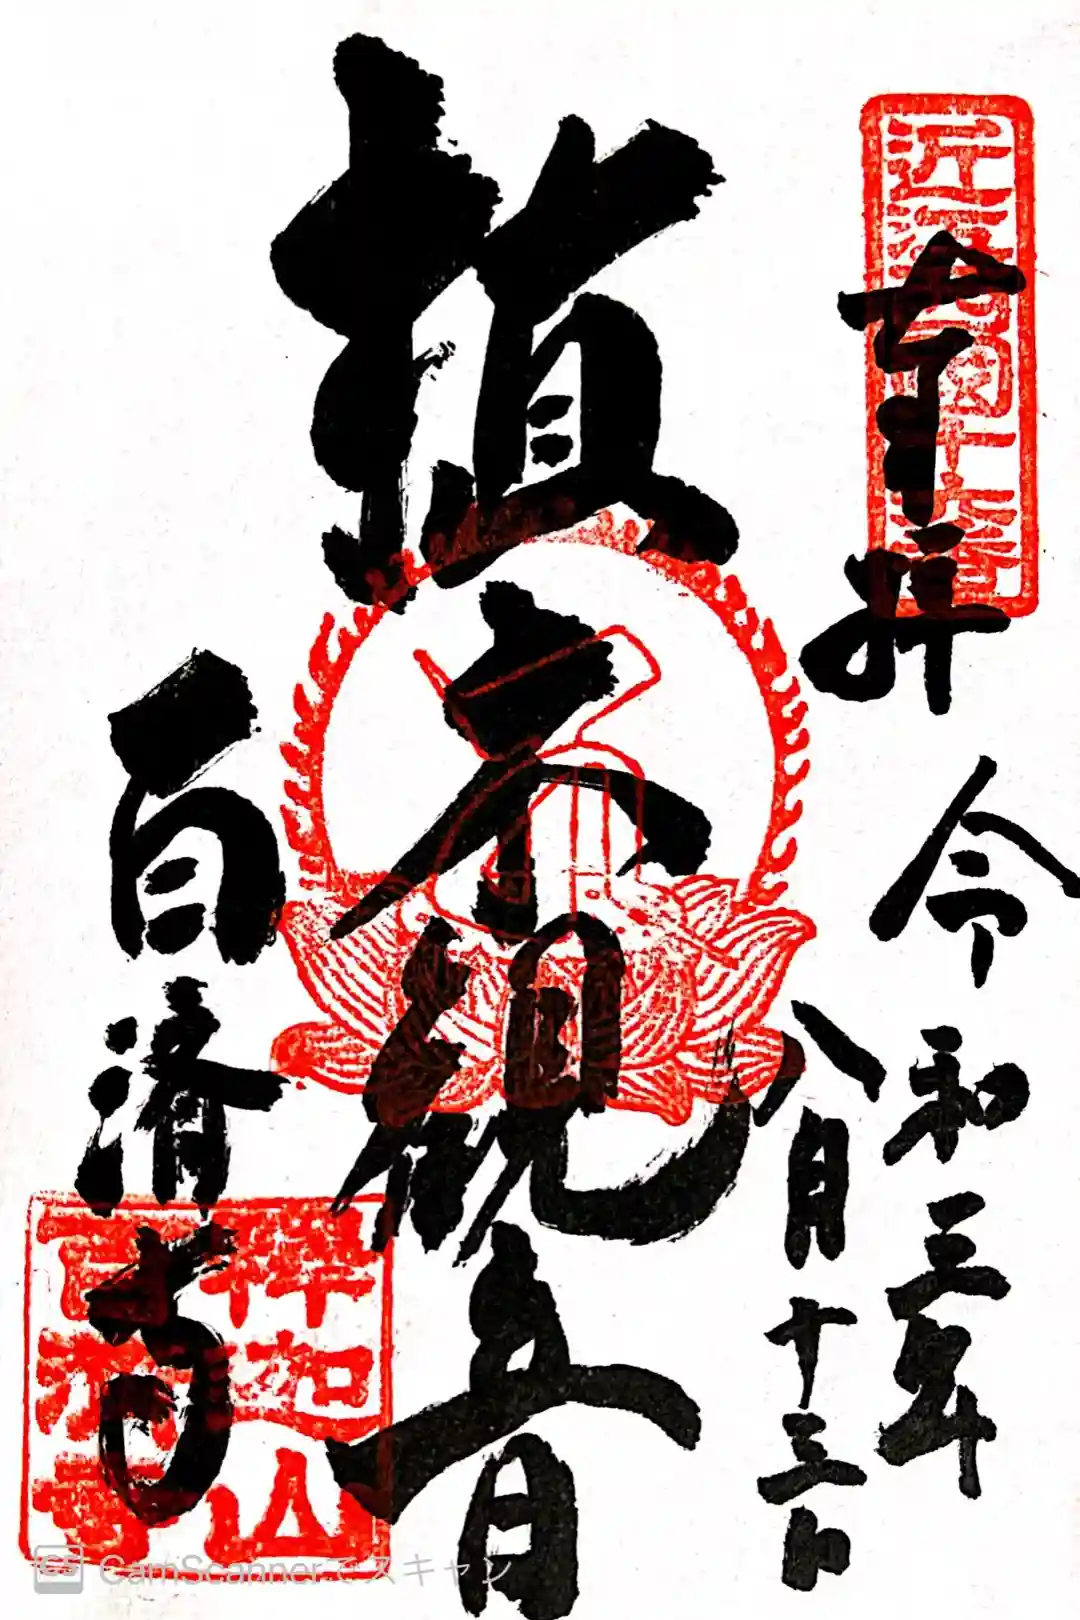 奉拝
令和三年
八月十三日
植木観音
百済寺
近西国十六番
釋迦山
百済寺
CamScannerでスキャン